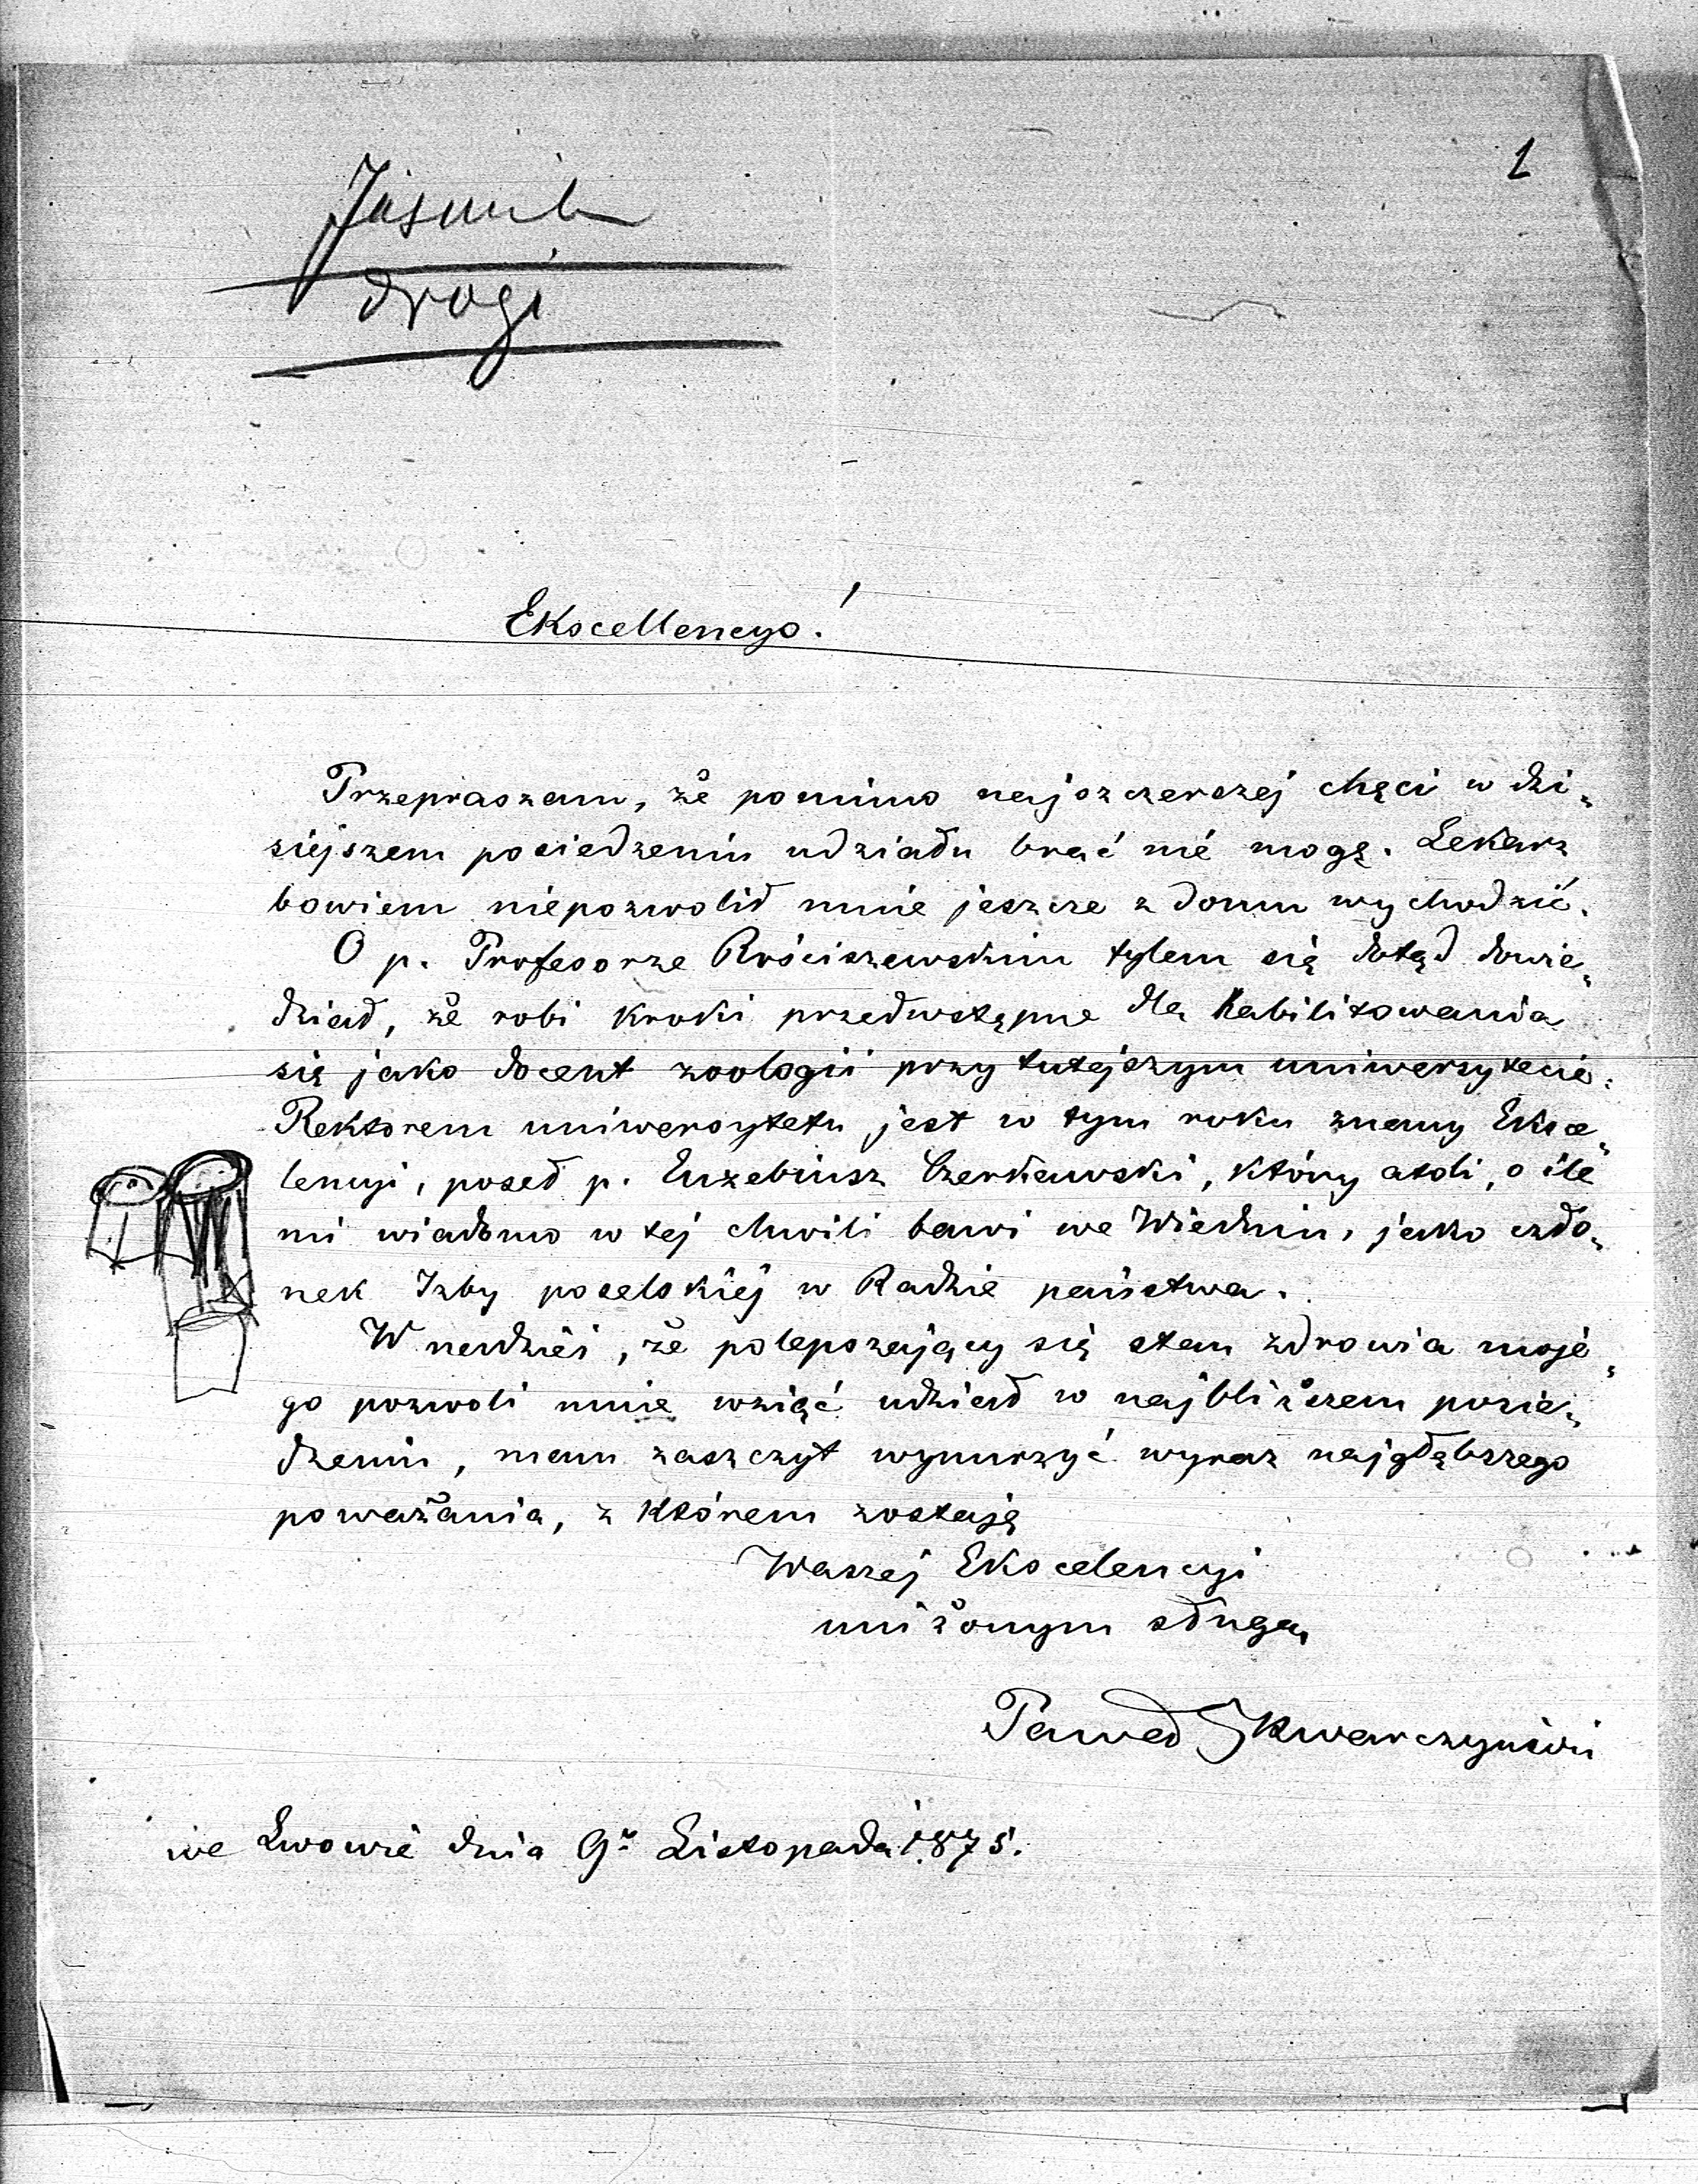 1
drogi
Ekscellencyo!
Przepraszam, że pomimo najszczerszéj chęci w dzi„
siejszem posiedzeniu udziału brać nié mogę. Lekarz
bowiem niépozwolił mnie jeszcze z domu wychodzić.
O p. Profesorze Rościszewskim tylem się dotąd dowie„
dział, że robi kroki przedwstępne dla habilitowania
się jako docent zoologii przy tutéjszym uniwersytecie.
Rektorem uniwersytetu jest w tym roku znany Eksce„
lencyi, poseł p. Euzebiusz Czerkawski, który atoli, o ile
mi wiadomo w tej chwili bawi we Wiedniu, jako czło„
nek Izby poselskiéj w Radzie państwa.
W nadziéi, że polepszający się stan zdrowia moje„
go pozwoli mnie wziąć udział w najbliższem posie„
dzeniu, mam zaszczyt wynurzyć wyraz najgłębszego
poważania, z którem zostaję
Waszej Ekscelencyi
uniżonym sługą
Paweł Skwarczyński
we Lwowie dnia 9. Listopada 1875.